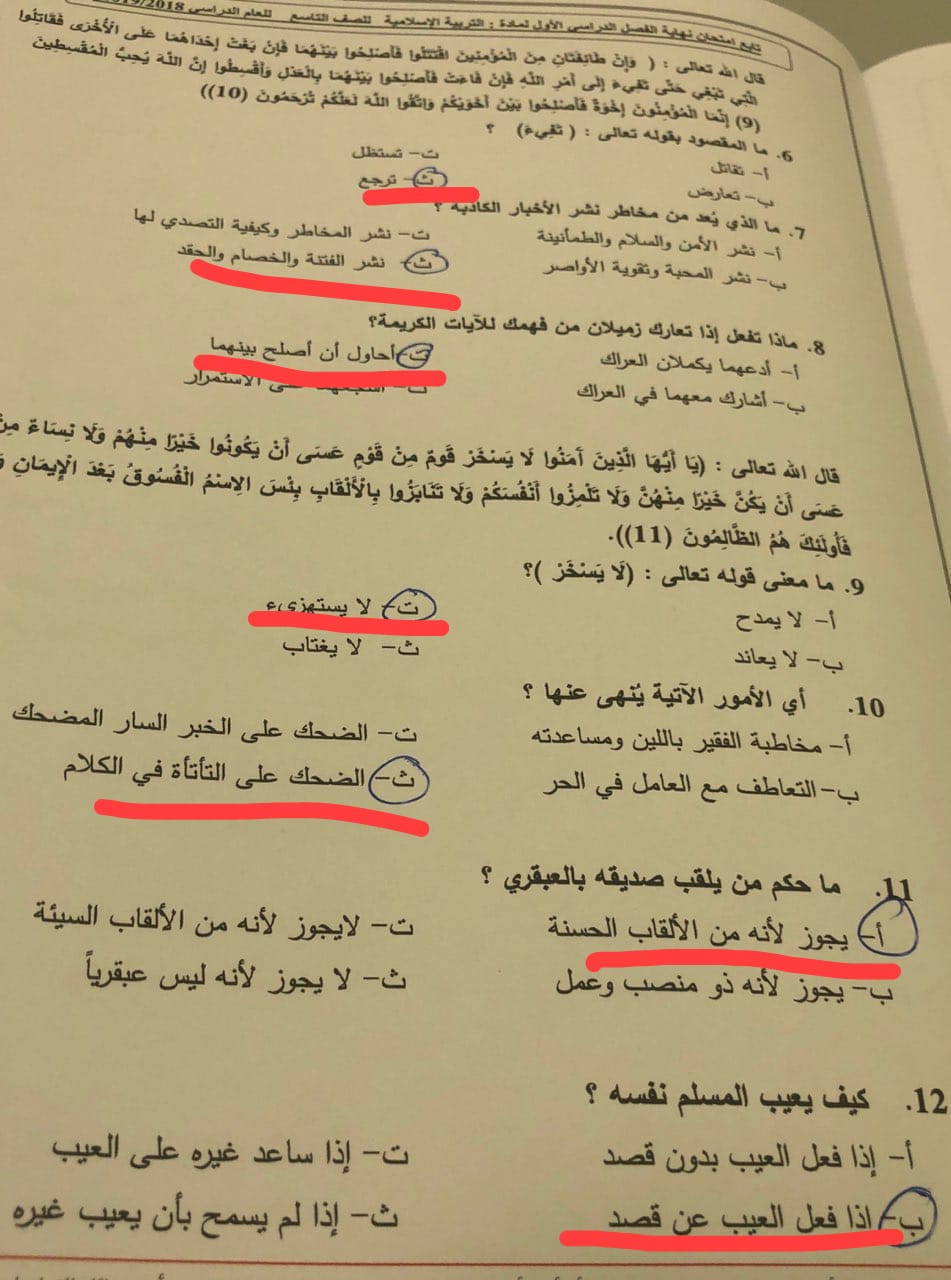 تابع امتحان نهاية الفصل الدراسي الأول لمادة : التربية الإسلامية للصف التاسع للعام الدراسي 2019/2018
قال الله تعالى : ( وَإِنْ طَائِفَتَانِ مِنَ الْمُؤْمِنِينَ اقْتَتَلُوا فَأَصْلِحُوا بَيْنَهُمَا فَإِنْ بَغَتْ إِحْدَاهُمَا عَلَى الْأُخْرَى فَقَاتِلُوا
الَّتِي تَبْغِي حَتَّى تَفِيءَ إِلَى أَمْرِ اللَّهِ فَإِنْ فَاءَتْ فَأَصْلِحُوا بَيْنَهُمَا بِالْعَدْلِ وَأَقْسِطُوا إِنَّ اللَّهَ يُحِبُّ الْمُقْسِطِينَ
(9) إِنَّمَا الْمُؤْمِنُونَ إِخْوَةٌ فَأَصْلِحُوا بَيْنَ أَخَوَيْكُمْ وَاتَّقُوا اللَّهَ لَعَلَّكُمْ تُرْحَمُونَ (10))
6. ما المقصود بقوله تعالى : ( تَفِيءَ) ؟
أ- تقاتل ت- تستظل
ب- تعارض ث- ترجع
7. ما الذي يُعد من مخاطر نشر الأخبار الكاذبة ؟
أ- نشر الأمن والسلام والطمأنينة ت- نشر المخاطر وكيفية التصدي لها
ب- نشر المحبة وتقوية الأواصر ث- نشر الفتنة والخصام والحقد
8. ماذا تفعل إذا تعارك زميلان من فهمك للآيات الكريمة؟
أ- أدعهما يكملان العراك ت- أحاول أن أصلح بينهما
ب- أشارك معهما في العراك ث- أشجعهما على الاستمرار
قال الله تعالى : (يَا أَيُّهَا الَّذِينَ آمَنُوا لَا يَسْخَرْ قَومٌ مِنْ قَوْمٍ عَسَى أَنْ يَكُونُوا خَيْرًا مِنْهُمْ وَلَا نِسَاءٌ مِنْ
عَسَى أَنْ يَكُنَّ خَيْرًا مِنْهُنَّ وَلَا تَلْمِزُوا أَنْفُسَكُمْ وَلَا تَنَابَزُوا بِالْأَلْقَابِ بِئْسَ الِاسْمُ الْفُسُوقُ بَعْدَ الْإِيمَانِ وَ
فَأُولَئِكَ هُمُ الظَّالِمُونَ (11)).
9. ما معنى قوله تعالى : (لَا يَسْخَرْ )؟
أ- لا يمدح ت- لا يستهزيء
ب- لا يعاند ث- لا يغتاب
10. أي الأمور الآتية يُنهى عنها ؟
أ- مخاطبة الفقير باللين ومساعدته ت- الضحك على الخبر السار المضحك
ب- التعاطف مع العامل في الحر ث- الضحك على التأتأة في الكلام
11. ما حكم من يلقب صديقه بالعبقري ؟
أ- يجوز لأنه من الألقاب الحسنة ت- لايجوز لأنه من الألقاب السيئة
ب- يجوز لأنه ذو منصب وعمل ث- لا يجوز لأنه ليس عبقرياً
12. كيف يعيب المسلم نفسه ؟
أ- إذا فعل العيب بدون قصد ت- إذا ساعد غيره على العيب
ب- اذا فعل العيب عن قصد ث- إذا لم يسمح بأن يعيب غيره